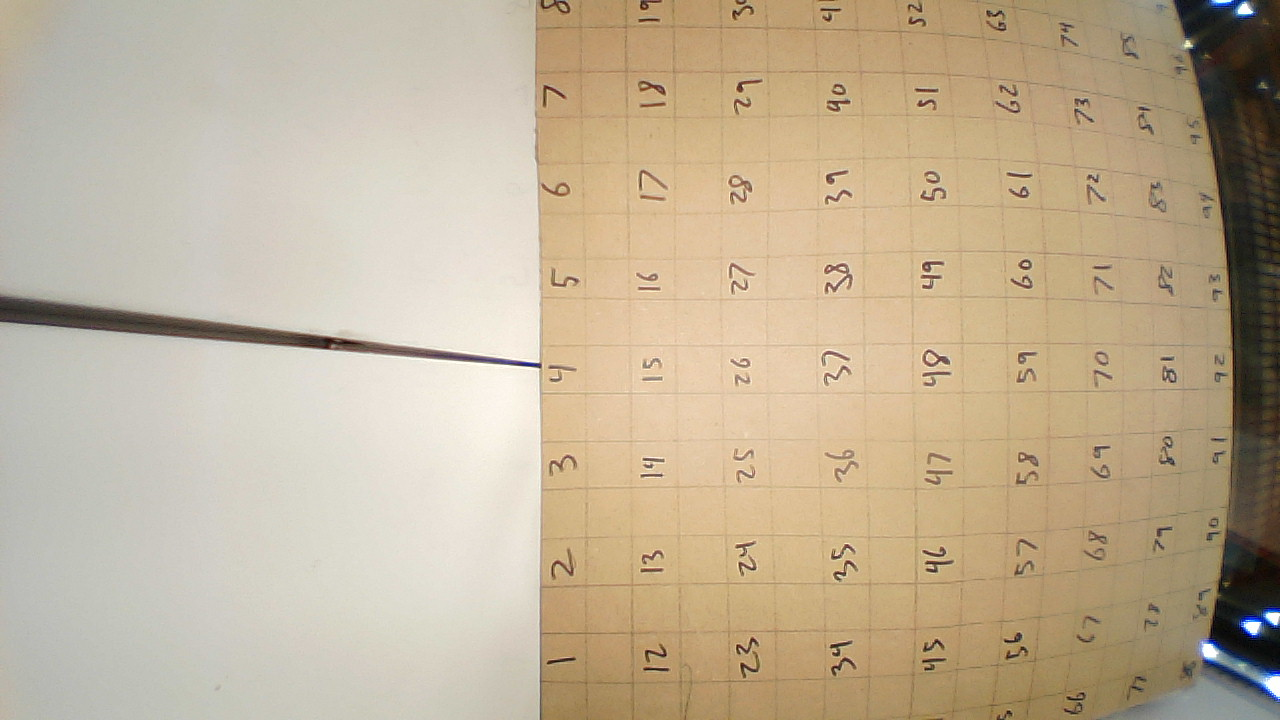 1 2 3 4 5 6 7 8
12 13 14 15 16 17 18 19
23 24 25 26 27 28 29 30
34 35 36 37 38 39 40 41
45 46 47 48 49 50 51 52
56 57 58 59 60 61 62 63
66 67 68 69 70 71 72 73 74
77 78 79 80 81 82 83 84 85
89 90 91 92 93 94 95 96